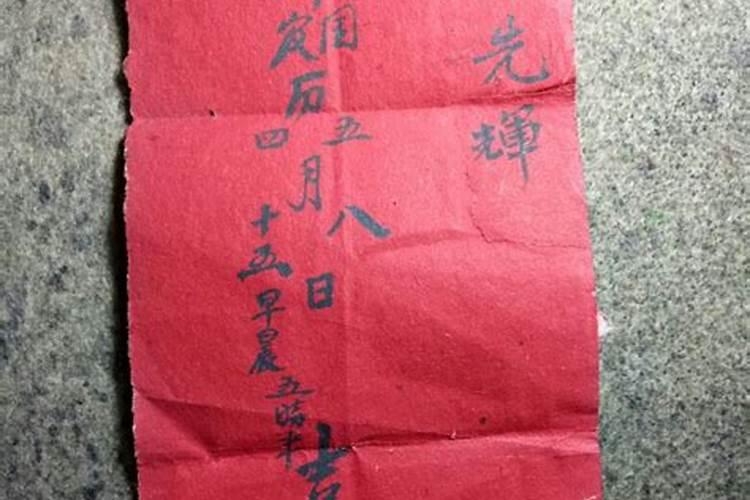 先輝
国农历五四月八十五日
早晨五時半
吉